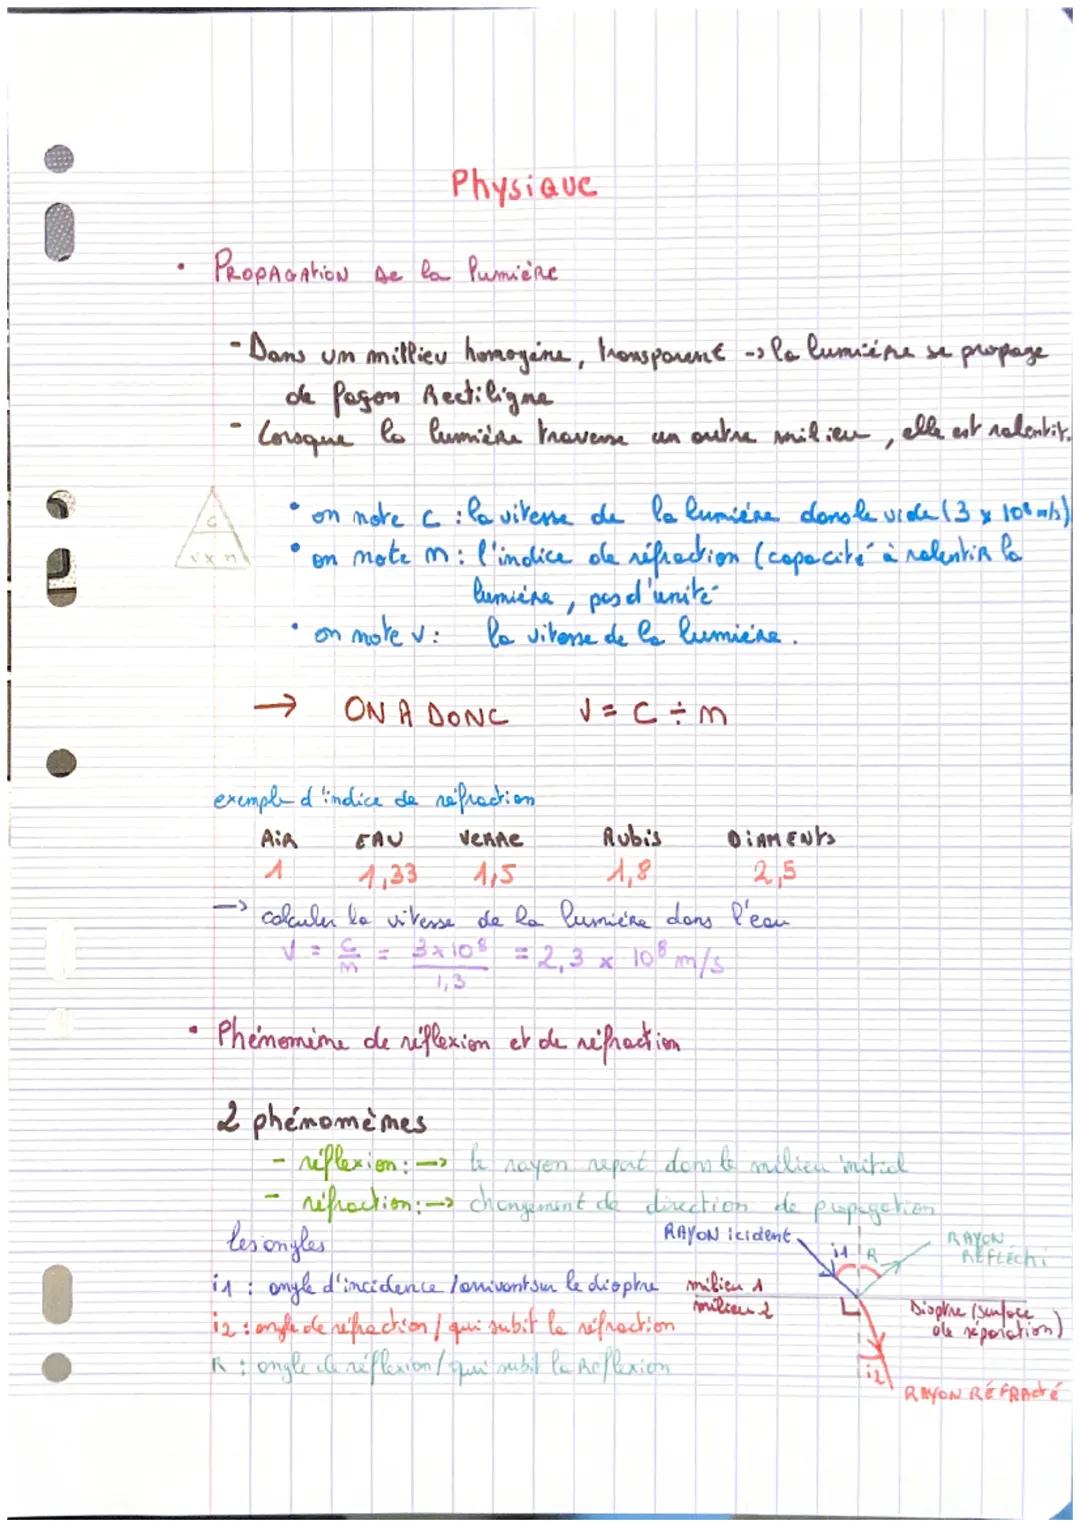 Physique
• PROPAGATION de la lumière
- Dans un millieu homogène, transparent -> la lumière se propage
de façon Rectiligne
- Lorsque la lumière traverse un autre milieu, elle est ralentit.
• on note c : la vitesse de la lumière dans le vide (3 x 10⁸ m/s)
c
v x n
• on note n : l'indice de réfraction (capacité à ralentir la
lumière, pas d'unité
• on note v : la vitesse de la lumière.
→ ON A DONC v = c ÷ n
exemple d'indice de réfraction
AIR EAU VERRE Rubis DIAMENTS
1 1,33 1,5 1,8 2,5
→ calculer la vitesse de la lumière dans l'eau
v = c/n = 3x10⁸/1,3 = 2,3 x 10⁸ m/s
• Phénomène de réflexion et de réfraction
2 phénomèmes
- réflexion : -> le rayon repart dans le milieu initial
- réfraction : -> changement de direction de propagation
les angles
RAYON icident
i1 R
RAYON RÉFLÉCHI
i1 : angle d'incidence / arrivant sur le dioptre
milieu 1
milieu 2
Dioptre (surface de séparation)
i2 : angle de réfraction / qui subit la réfraction
R : angle de réflexion / qui subit la Réflexion
i2
RAYON RÉFRACTÉ